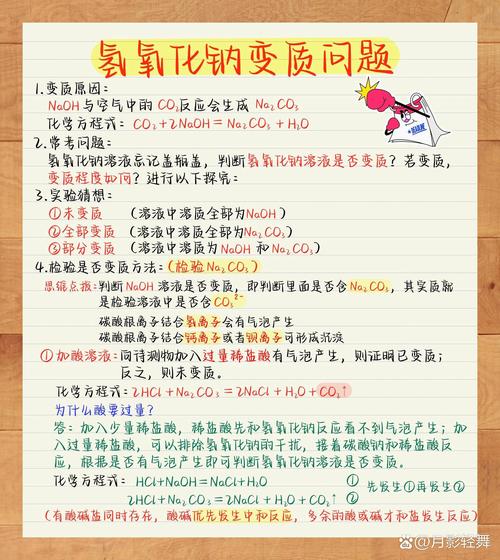 氢氧化钠变质问题
1.变质原因:
NaOH与空气中的CO₂反应会生成 Na₂CO₃
化学方程式: CO₂+2NaOH=Na₂CO₃+H₂O
2.常考问题:
氢氧化钠溶液忘记盖瓶盖,判断氢氧化钠溶液是否变质?若变质,
变质程度如何?进行以下探究:
3.实验猜想:
①未变质 (溶液中溶质全部为NaOH)
②全部变质 (溶液中溶质全部为Na₂CO₃)
③部分变质 (溶液中溶质为 NaOH 和Na₂CO₃)
4.检验是否变质方法:(检验Na₂CO₃)
思维点拨:判断NaOH溶液是否变质,即判断里面是否含Na₂CO₃,其实质就
是检验溶液中是否含CO₃²⁻
碳酸根离子结合氢离子会有气泡产生
碳酸根离子结合钙离子或者钡离子可形成沉淀
①加酸溶液:向待测物加入过量稀盐酸有气泡产生,则证明已变质;
反之,则未变质。
化学方程式:2HCl+Na₂CO₃=2NaCl+H₂O+CO₂↑
为什么酸要过量?
答:加入少量稀盐酸,稀盐酸先和氢氧化钠反应看不到气泡产生;加
入过量稀盐酸,可以排除氢氧化钠的干扰,接着碳酸钠和稀盐酸反
应,根据是否有气泡产生即可判断氢氧化钠溶液是否变质。
化学方程式: HCl+NaOH=NaCl+H₂O ①
2HCl+Na₂CO₃=2NaCl+H₂O+CO₂↑ ②
先发生①再发生②
(有酸碱盐同时存在,酸碱优先发生中和反应,多余的酸或碱才和盐发生反应)
@月影轻舞